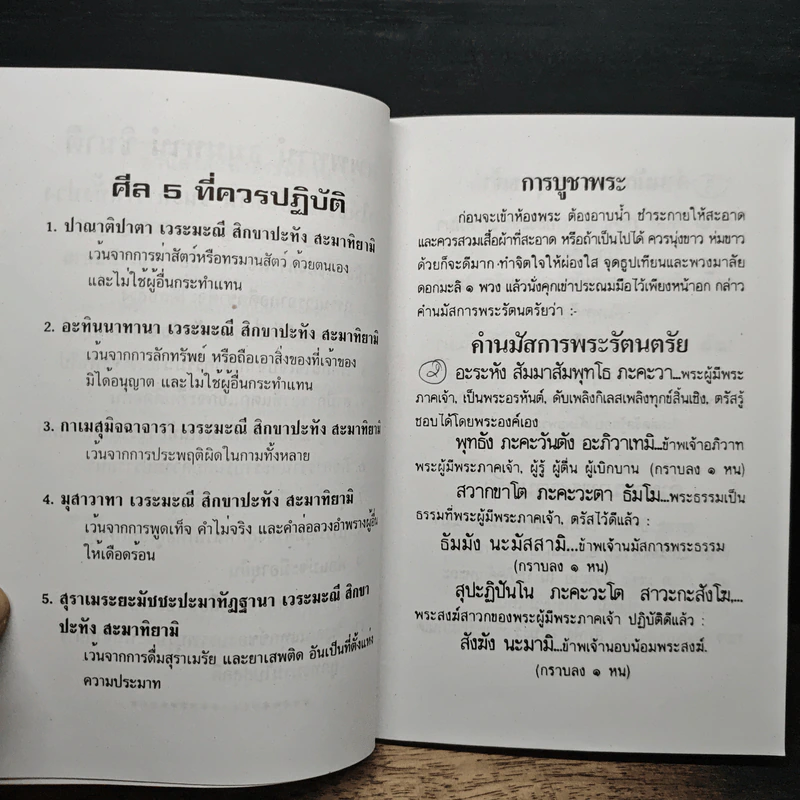 ศีล 5 ที่ควรปฏิบัติ
1. ปาณาติปาตา เวระมะณี สิกขาปะทัง สะมาทิยามิ
เว้นจากการฆ่าสัตว์หรือทรมานสัตว์ ด้วยตนเอง
และไม่ใช้ผู้อื่นกระทำแทน
2. อะทินนาทานา เวระมะณี สิกขาปะทัง สะมาทิยามิ
เว้นจากการลักทรัพย์ หรือถือเอาสิ่งของที่เจ้าของ
มิได้อนุญาต และไม่ใช้ผู้อื่นกระทำแทน
3. กาเมสุมิจฉาจารา เวระมะณี สิกขาปะทัง สะมาทิยามิ
เว้นจากการประพฤติผิดในกามทั้งหลาย
4. มุสาวาทา เวระมะณี สิกขาปะทัง สะมาทิยามิ
เว้นจากการพูดเท็จ คำไม่จริง และคำล่อลวงอำพรางผู้อื่น
ให้เดือดร้อน
5. สุราเมระยะมัชชะปะมาทัฏฐานา เวระมะณี สิกขา
ปะทัง สะมาทิยามิ
เว้นจากการดื่มสุราเมรัย และยาเสพติด อันเป็นที่ตั้งแห่ง
ความประมาท
การบูชาพระ
ก่อนจะเข้าห้องพระ ต้องอาบน้ำ ชำระกายให้สะอาด
และควรสวมเสื้อผ้าที่สะอาด หรือถ้าเป็นไปได้ ควรนุ่งขาว ห่มขาว
ด้วยก็จะดีมาก ทำจิตใจให้ผ่องใส จุดธูปเทียนและพวงมาลัย
ดอกมะลิ ๑ พวง แล้วนั่งคุกเข่าประณมมือไว้เพียงหน้าอก กล่าว
คำนมัสการพระรัตนตรัยว่า :-
คำนมัสการพระรัตนตรัย
๒ อะระหัง สัมมาสัมพุทโธ ภะคะวา...พระผู้มีพระ
ภาคเจ้า, เป็นพระอรหันต์, ดับเพลิงกิเลสเพลิงทุกข์สิ้นเชิง, ตรัสรู้
ชอบได้โดยพระองค์เอง
พุทธัง ภะคะวันตัง อะภิวาเทมิ...ข้าพเจ้าอภิวาท
พระผู้มีพระภาคเจ้า, ผู้รู้ ผู้ตื่น ผู้เบิกบาน (กราบลง ๑ หน)
สวากขาโต ภะคะวะตา ธัมโม...พระธรรมเป็น
ธรรมที่พระผู้มีพระภาคเจ้า, ตรัสไว้ดีแล้ว :
ธัมมัง นะมัสสามิ...ข้าพเจ้านมัสการพระธรรม
(กราบลง ๑ หน)
สุปะฏิปันโน ภะคะวะโต สาวะกะสังโฆ,...
พระสงฆ์สาวกของพระผู้มีพระภาคเจ้า ปฏิบัติดีแล้ว :
สังฆัง นะมามิ...ข้าพเจ้านอบน้อมพระสงฆ์.
(กราบลง ๑ หน)